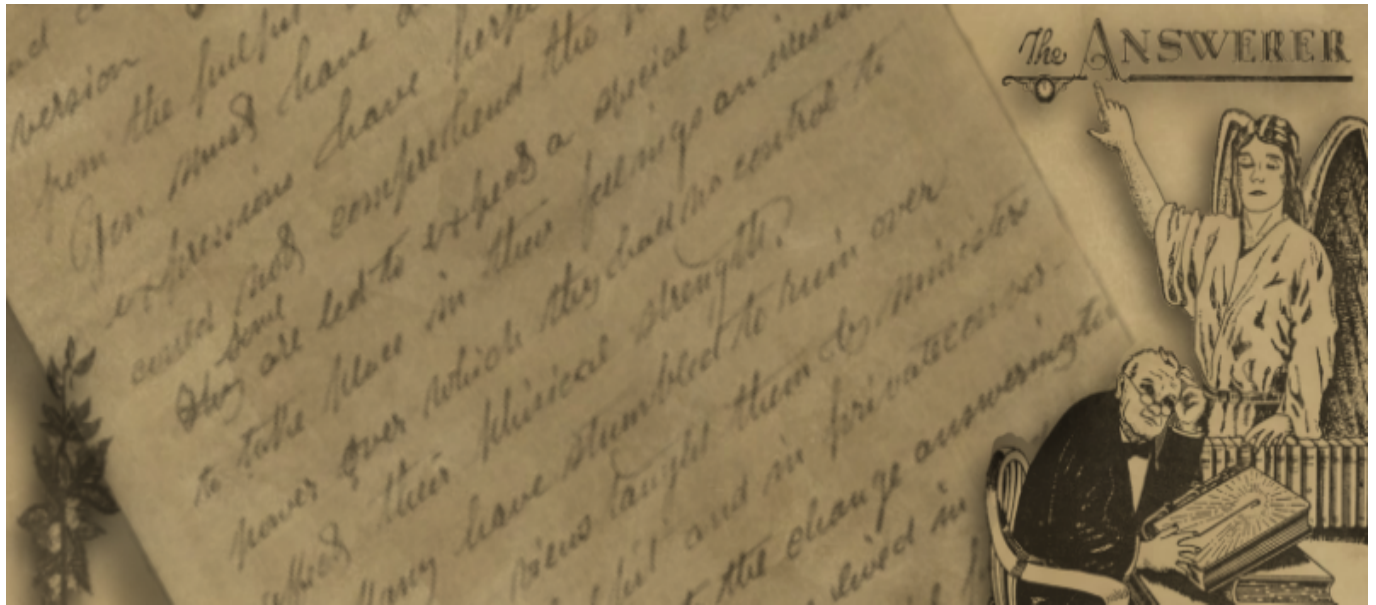 The ANSWERER
version
from the pulpit
You must have a
expressions have
not comprehend the
Some
they are led to expect a special
to take place in their feelings an
power over which they had no control to
their phisical strength.
Many have stumbled to ruin over
views taught them by ministers
and in private conver-
the change answering to
in